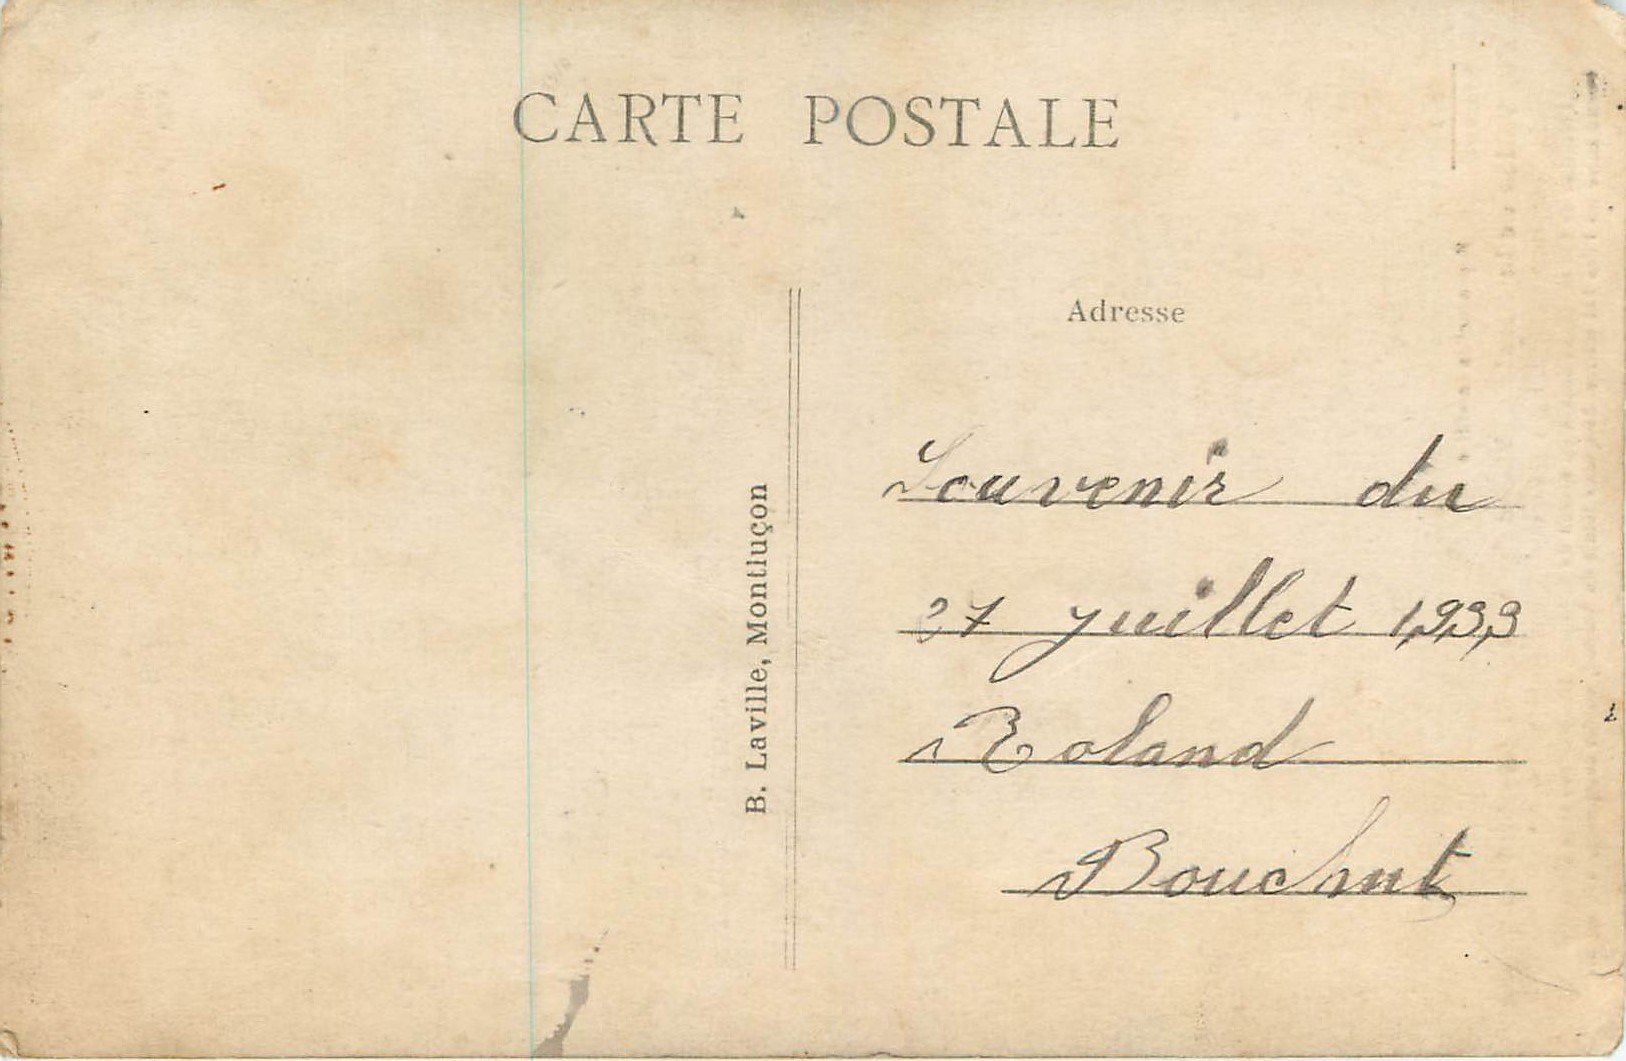 CARTE POSTALE
B. Laville, Montluçon
Adresse
Souvenir du
27 juillet 1933
Roland
Bouchut